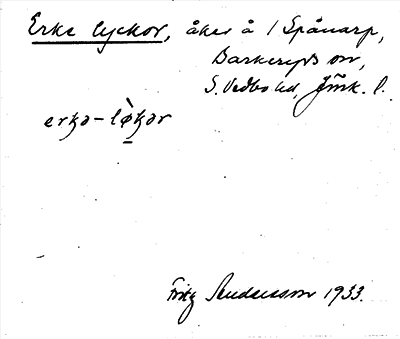 Erke lyckor, åker å 1 Spånarp,
Barkeryds sn,
S. Vedbo hd, Jönk. l.
erkə-lø̀kər
Fritz Andersson 1933.